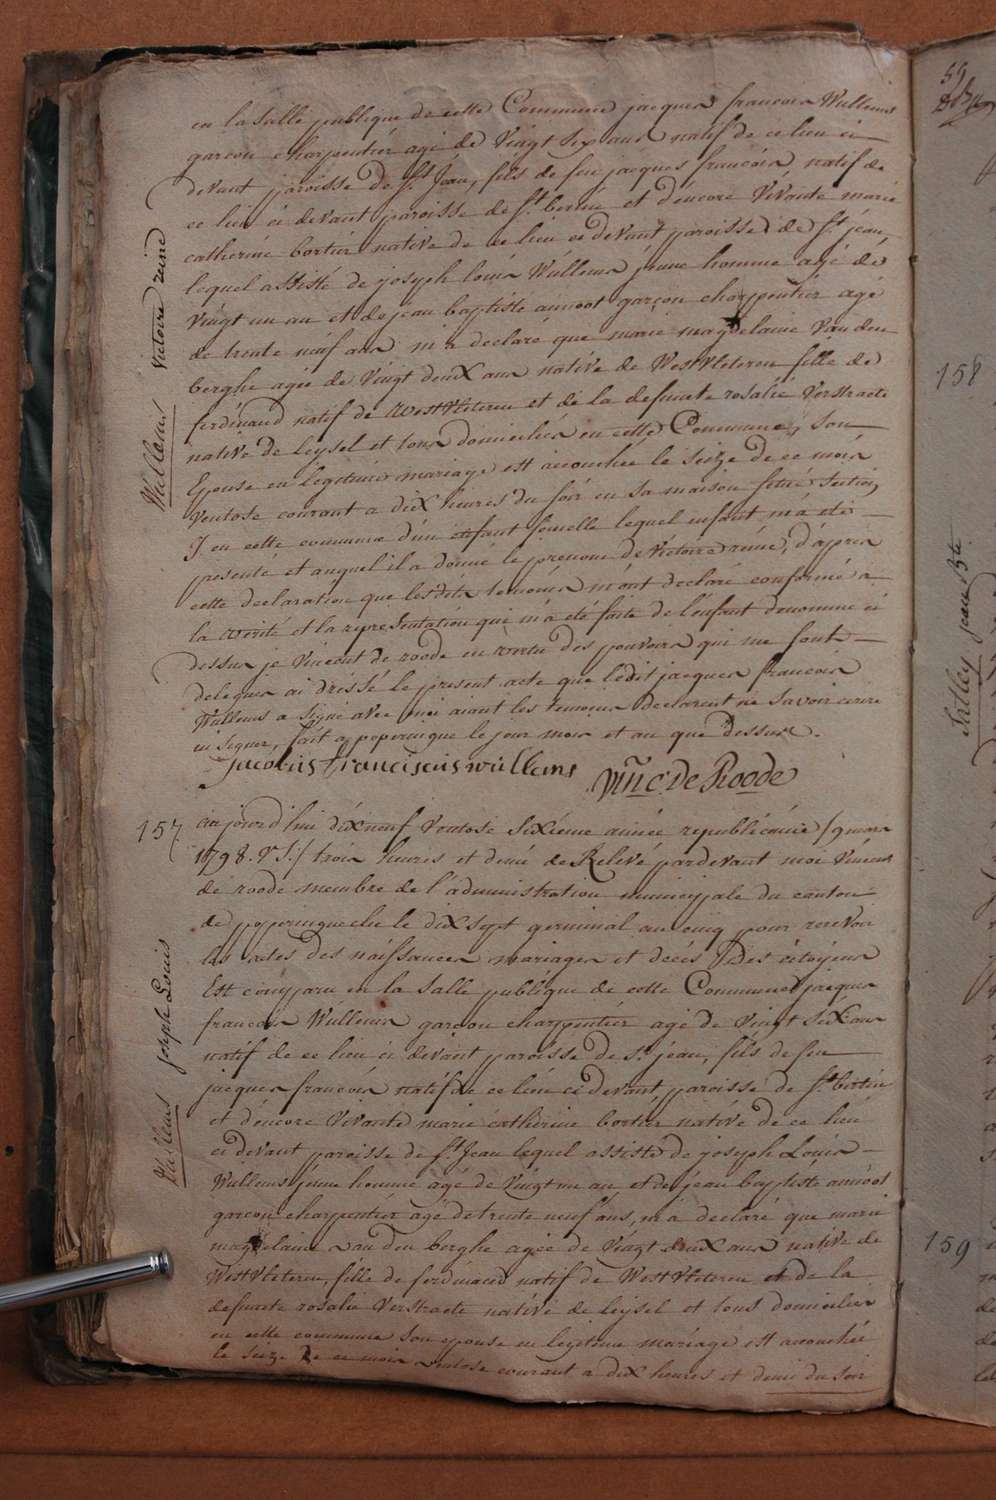 en la Salle publique de cette Commune jacques francois Wullems
garcon charpentier agé de Vingt Six ans natif de ce lieu ci
devant paroisse de St. Jean, fils de feu jacques francois, natif de
ce lieu ci devant paroisse de St. bertin et d'encore Vivante marie
catherine bortier native de ce lieu ci devant paroisse de St. jean
lequel assisté de joseph louis Wullems jeune homme agé de
Vingt un an et de jean baptiste annoot garçon charpentier agé
de trente neuf ans m'a declaré que marie magdelaine Vanden
berghe agée de Vingt deux ans native de WestVleteren fille de
ferdinand natif de WestVleteren et de la defunte rosalie Verstraete
native de Leysel et tous domiciliés en cette Commune, Son
Epouse en legitime mariage est accouchée le Seize de ce mois
Ventose courant a dix heures du soir en sa maison situé Section
J en cette commune d'un enfant femelle lequel enfant m'a été
presenté et auquel il a donné le prenom de Victoire reine, d'après
cette declaration que lesdits temoins m'ont declaré conforme a
la verité et la representation qui m'a été faite de l'enfant denommé ci
dessus je Vincent de roode en vertu des pouvoirs qui me sont
delegues ai dressé le present acte que ledit jacques francois
Wullems a Signé avec moi aiant les temoins declarent ne Savoir ecrire
ni signer, fait a poperingue le jour mois et an que dessus.
jacobus Franciscus wullems Vinc. De Roode
Wullems Victoire reine
157
aujourd'hui dixneuf Ventose Sixieme année republicaine /9 mars
1798. V.S./ trois heures et demi de Relevé pardevant moi Vincent
de roode membre de l'administration municipale du canton
de poperingue elu le dix sept germinal an cinq pour recevoir
les actes des naissances mariages et décés des citoyens
Est comparu en la Salle publique de cette Commune jacques
francois Wullems garçon charpentier agé de Vingt Six ans
natif de ce lieu ci devant paroisse de St. jean, fils de feu
jacques francois natif de ce lieu ci devant paroisse de St. bertin
et d'encore Vivante marie catherine bortier native de ce lieu
ci devant paroisse de St. Jean lequel assisté de joseph Louis
Wullems jeune homme agé de Vingt un an et de jean baptiste annoot
garçon charpentier agé de trente neuf ans, m'a declaré que marie
magdelaine Van den berghe agée de Vingt deux ans native de
WestVleteren, fille de ferdinand natif de WestVleteren et de la
defunte rosalie Verstraete native de leysel et tous domiciliés
en cette commune Son epouse en legitime mariage est accouchée
le Seize de ce mois Ventose courant a dix heures et demi du Soir
Wullems joseph Louis
59
158
Salley jean Bte
159